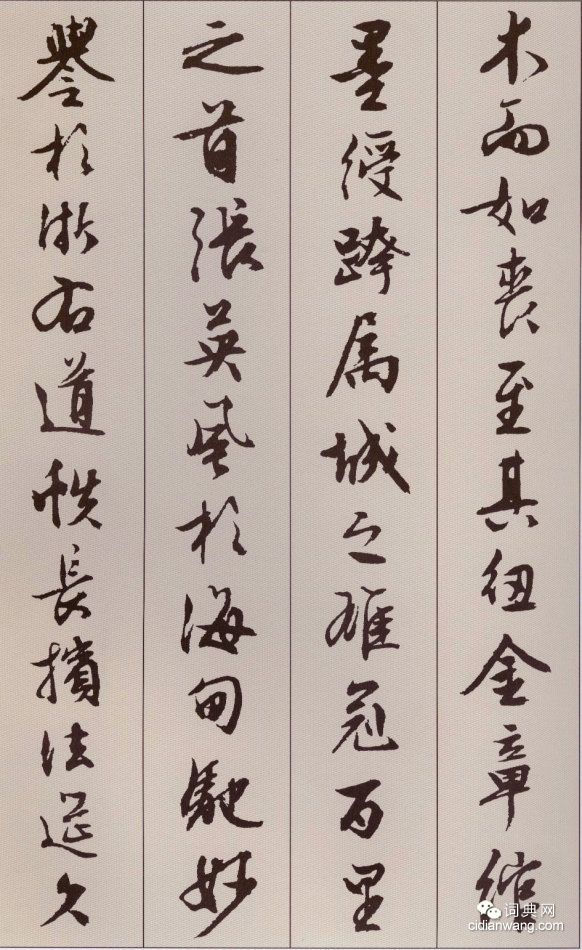 木而如丧至其纽金章绾
墨绶跨属城之雄冠百里
之首張英風於海甸馳妙
譽於浙右道帙長擯法筵久
词典网
cidianwang.com